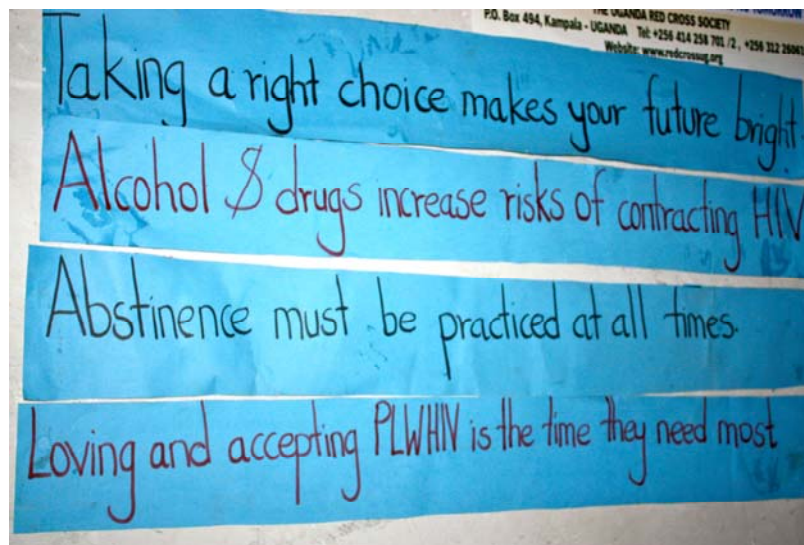 THE UGANDA RED CROSS SOCIETY
P.O. Box 494, Kampala - UGANDA Tel: +256 414 258 701 /2, +256 312 2606
Website: www.redcrossug.org
Taking a right choice makes your future bright
Alcohol $ drugs increase risks of contracting HIV
Abstinence must be practiced at all times.
Loving and accepting PLWHIV is the time they need most